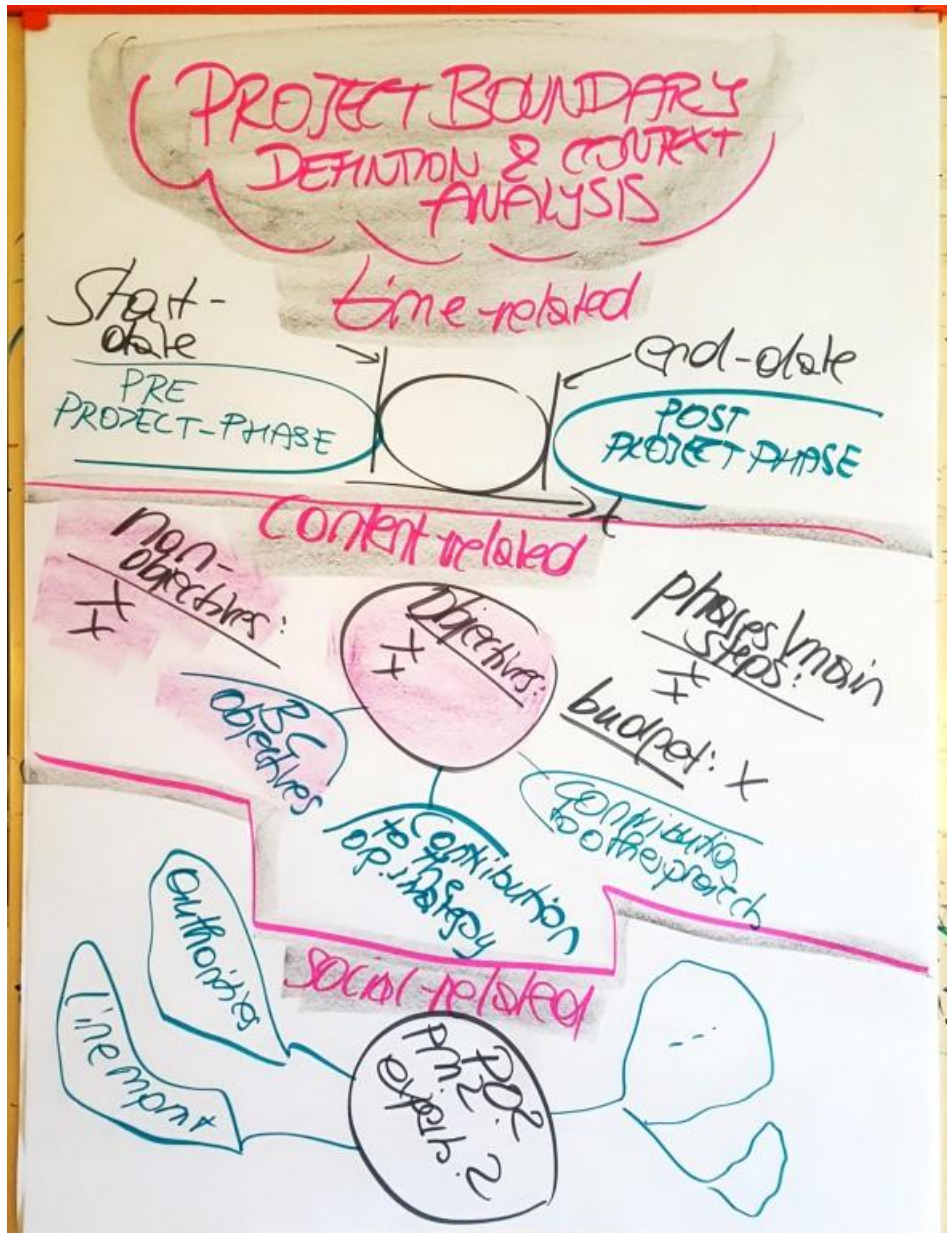 PROJECT BOUNDARY
DEFINTION & CONTEXT
ANALYSIS
time-related
Start-
date
end-date
PRE
PROJECT-PHASE
POST
PROJECT PHASE
t
Content-related
non-
objectives:
x
x
objectives:
x
x
phases/main
steps:
x
x
budget: x
BC
objectives
contribution
to the
op. strategy
contribution
to other project
social-related
authorities
line mgmt
PO:
PM:
experts:
---